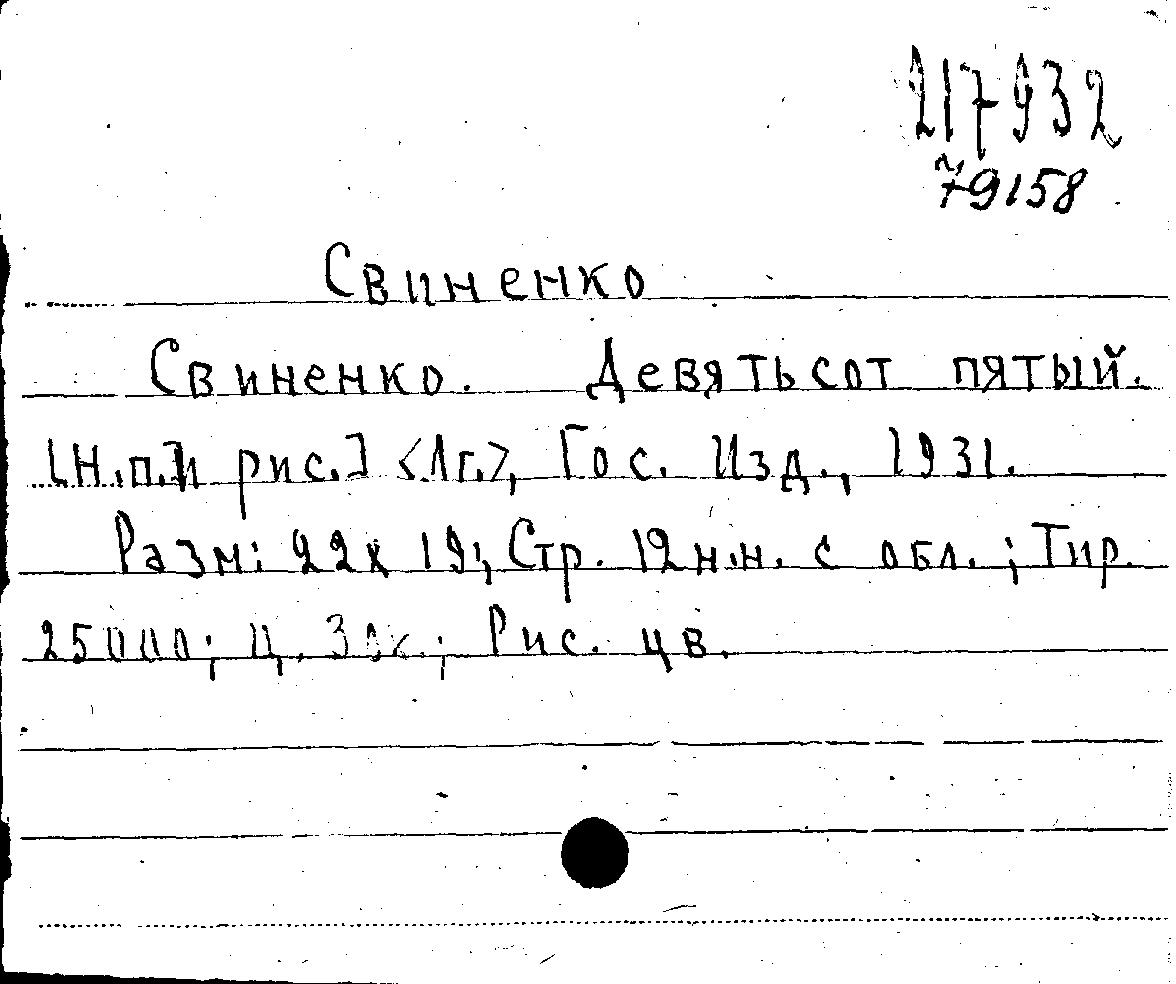 217932
79158
Свиненко
Свиненко. Девятьсот пятый.
[Н.п.] и рис.] <Лг.>, Гос. Изд., 1931.
Разм: 22 х 19; Стр. 12 н.н. с обл.; Тир.
25000; Ц. 30к.; Рис. цв.